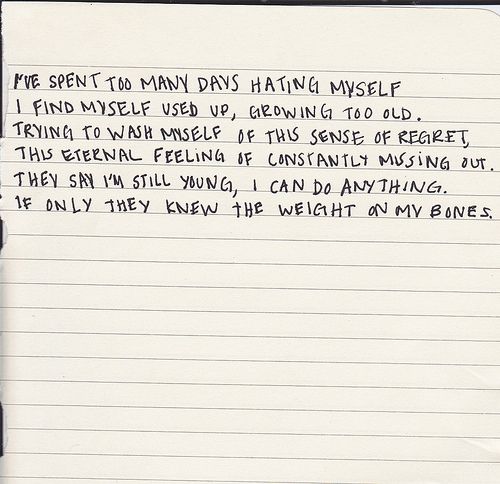 I'VE SPENT TOO MANY DAYS HATING MYSELF
I FIND MYSELF USED UP, GROWING TOO OLD.
TRYING TO WASH MYSELF OF THIS SENSE OF REGRET,
THIS ETERNAL FEELING OF CONSTANTLY MISSING OUT.
THEY SAY I'M STILL YOUNG, I CAN DO ANYTHING.
IF ONLY THEY KNEW THE WEIGHT ON MY BONES.